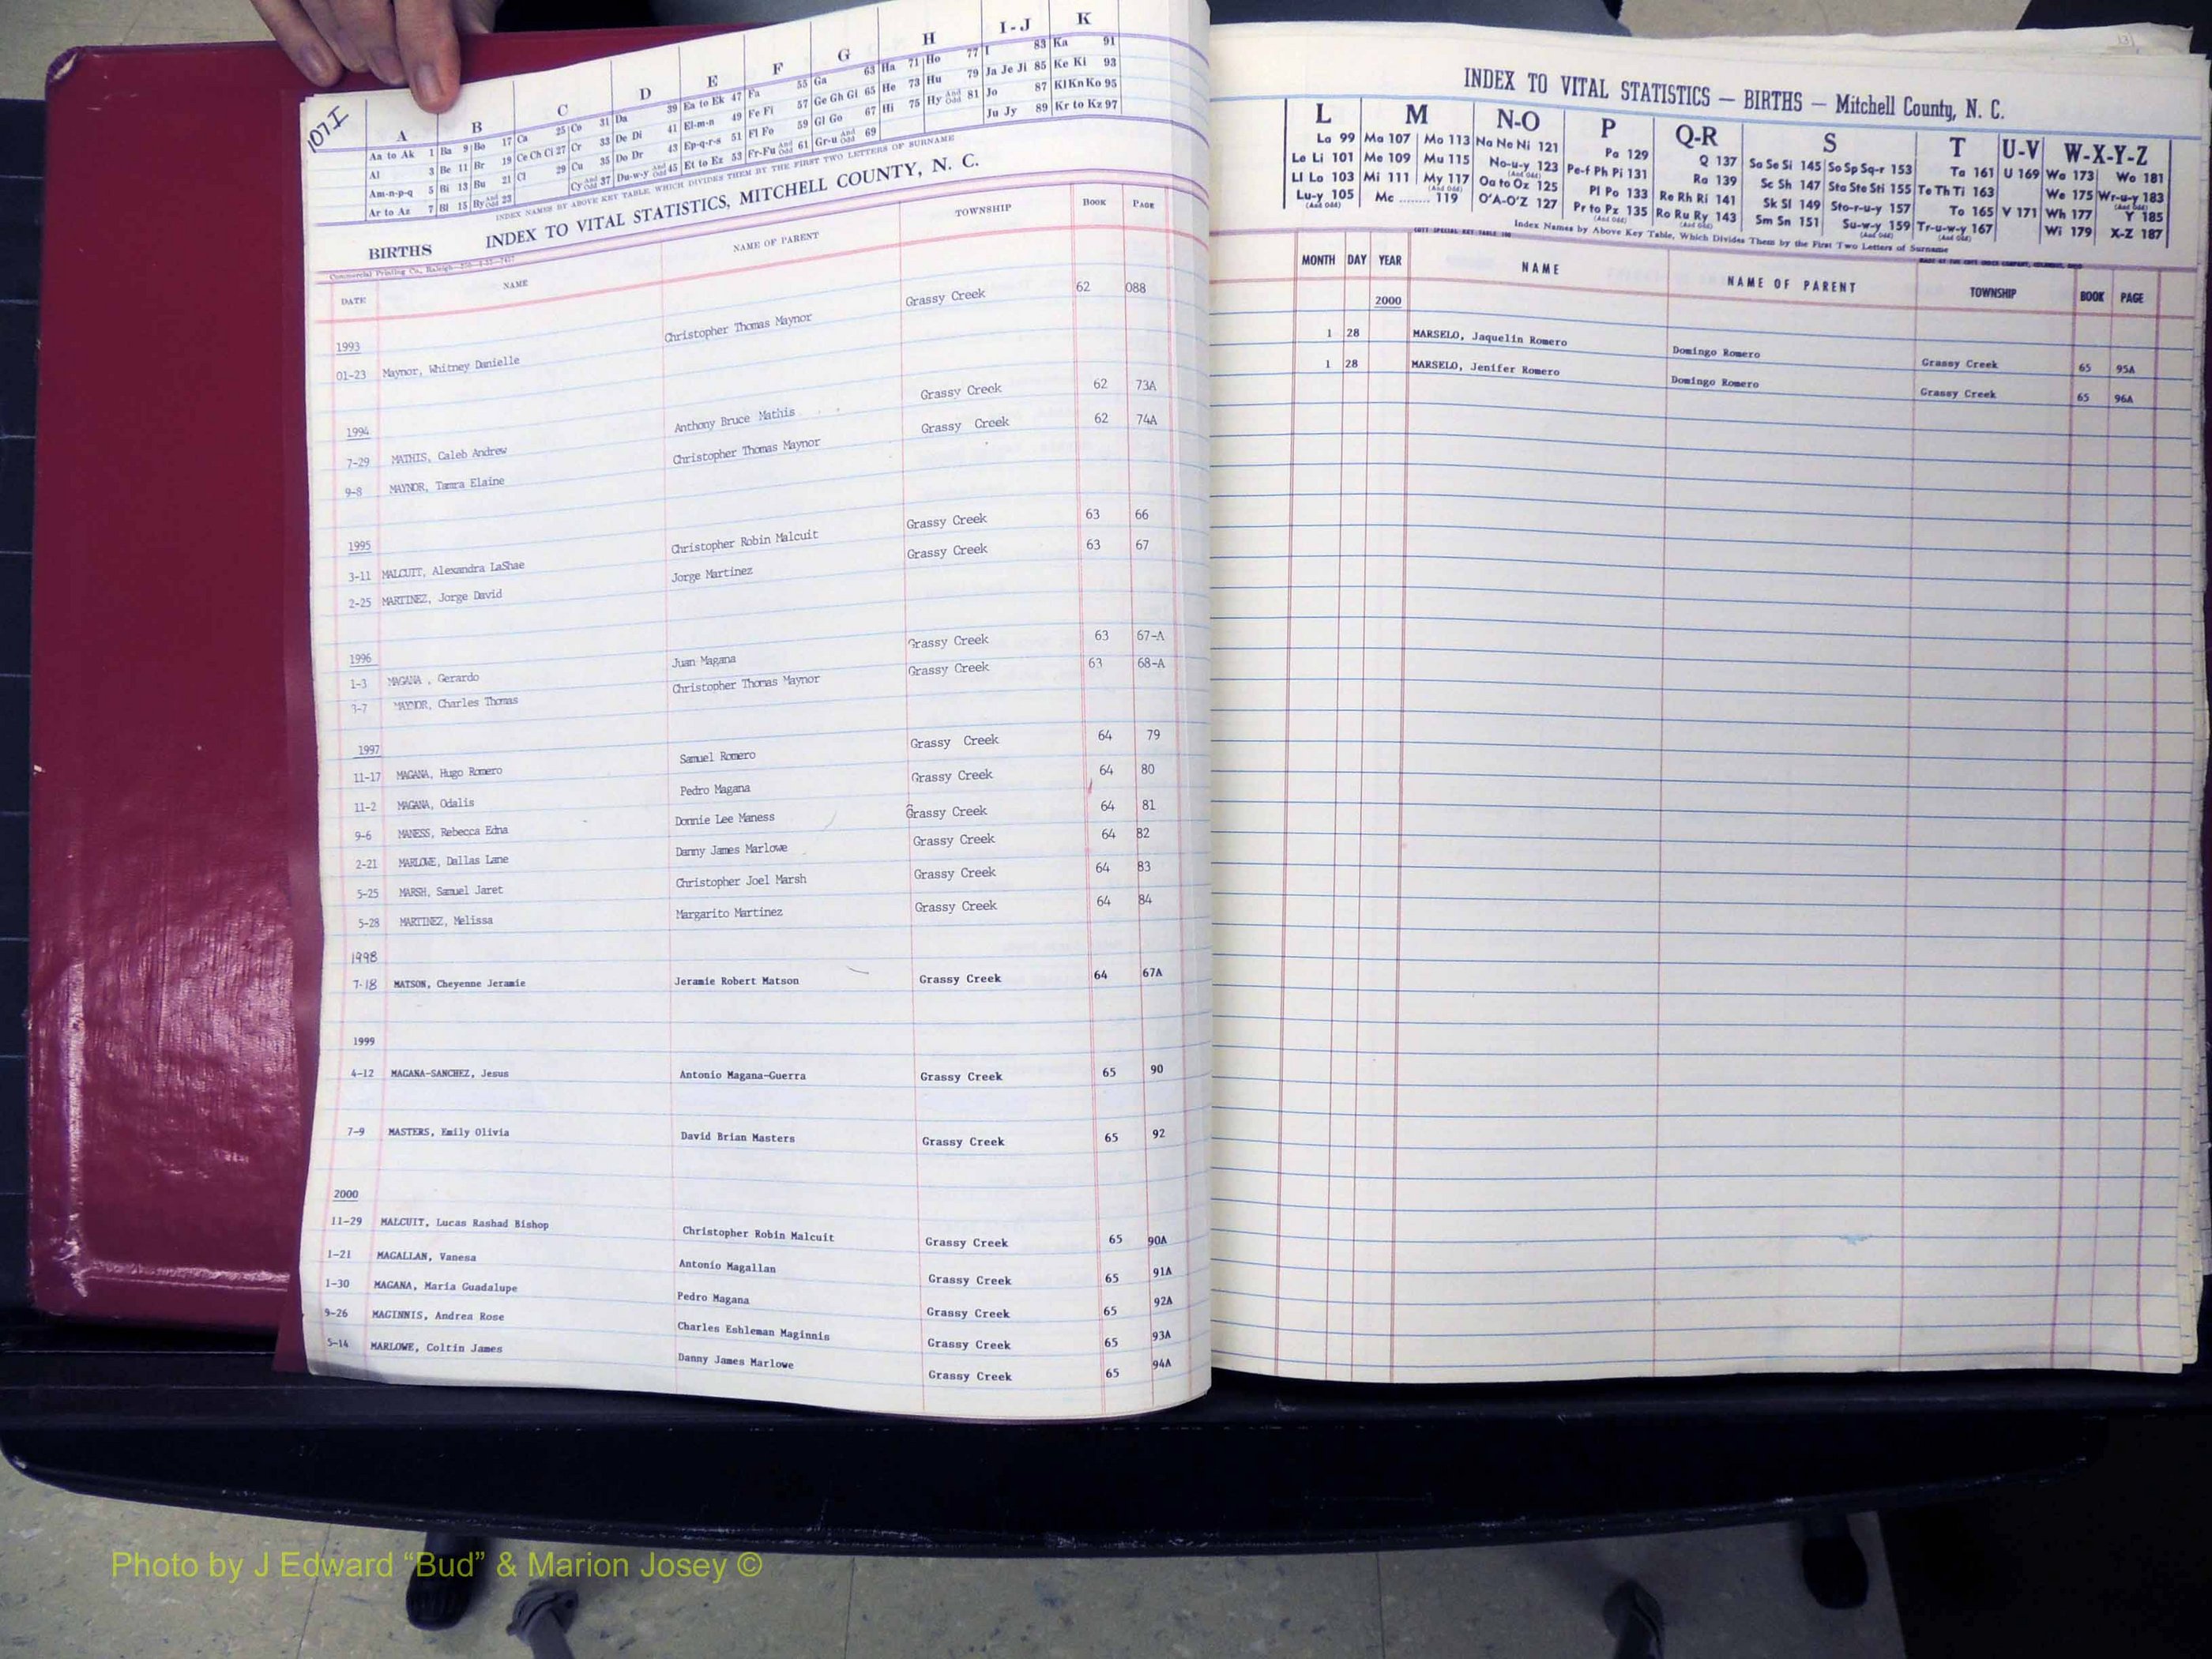 107-I
A B C D E F G H I-J K
Aa to Ak 1 Ba 9 Bo 17 Ca 25 Co 31 Da 39 Ea to Ek 47 Fa 55 Ga 63 Ha 71 Ho 77 I 83 Ka 91
Al 3 Be 11 Br 19 Ce Ch Ci 27 Cr 33 De Di 41 El-m-n 49 Fe Fi 57 Ge Gh Gi 65 He 73 Hu 79 Ja Je Ji 85 Ke Ki 93
Am-n-p-q 5 Bi 13 Bu 21 Cl 29 Cu 35 Do Dr 43 Ep-q-r-s 51 Fl Fo 59 Gl Go 67 Hi 75 Hy And Odd 81 Jo 87 Kl Kn Ko 95
Ar to Az 7 Bl 15 By And Odd 23 Cy And Odd 37 Du-w-y And Odd 45 Et to Ez 53 Fr-Fu And Odd 61 Gr-u And Odd 69 Ju Jy 89 Kr to Kz 97
INDEX NAMES BY ABOVE KEY TABLE, WHICH DIVIDES THEM BY THE FIRST TWO LETTERS OF SURNAME
BIRTHS INDEX TO VITAL STATISTICS, MITCHELL COUNTY, N. C.
Commercial Printing Co., Raleigh
DATE NAME NAME OF PARENT TOWNSHIP BOOK PAGE
1993
01-23 Maynor, Whitney Danielle Christopher Thomas Maynor Grassy Creek 62 088
1994
7-29 MATHIS, Caleb Andrew Anthony Bruce Mathis Grassy Creek 62 73A
9-8 MAYNOR, Tamra Elaine Christopher Thomas Maynor Grassy Creek 62 74A
1995
3-11 MALCUIT, Alexandra LaShae Christopher Robin Malcuit Grassy Creek 63 66
2-25 MARTINEZ, Jorge David Jorge Martinez Grassy Creek 63 67
1996
1-3 MAGANA , Gerardo Juan Magana Grassy Creek 63 67-A
3-7 MAYNOR, Charles Thomas Christopher Thomas Maynor Grassy Creek 63 68-A
1997
11-17 MAGANA, Hugo Romero Samuel Romero Grassy Creek 64 79
11-2 MAGANA, Odalis Pedro Magana Grassy Creek 64 80
9-6 MANESS, Rebecca Edna Donnie Lee Maness Grassy Creek 64 81
2-21 MARLOWE, Dallas Lane Danny James Marlowe Grassy Creek 64 82
5-25 MARSH, Samuel Jaret Christopher Joel Marsh Grassy Creek 64 83
5-28 MARTINEZ, Melissa Margarito Martinez Grassy Creek 64 84
1998
7-18 MATSON, Cheyenne Jeramie Jeramie Robert Matson Grassy Creek 64 67A
1999
4-12 MAGANA-SANCHEZ, Jesus Antonio Magana-Guerra Grassy Creek 65 90
7-9 MASTERS, Emily Olivia David Brian Masters Grassy Creek 65 92
2000
11-29 MALCUIT, Lucas Rashad Bishop Christopher Robin Malcuit Grassy Creek 65 90A
1-21 MAGALLAN, Vanesa Antonio Magallan Grassy Creek 65 91A
1-30 MAGANA, Maria Guadalupe Pedro Magana Grassy Creek 65 92A
9-26 MAGINNIS, Andrea Rose Charles Eshleman Maginnis Grassy Creek 65 93A
5-14 MARLOWE, Coltin James Danny James Marlowe Grassy Creek 65 94A
INDEX TO VITAL STATISTICS — BIRTHS — Mitchell County, N. C.
L M N-O P Q-R S T U-V W-X-Y-Z
La 99 Ma 107 Mo 113 Na Ne Ni 121 Pa 129 Q 137 Sa Se Si 145 So Sp Sq-r 153 Ta 161 U 169 Wa 173 Wo 181
Le Li 101 Me 109 Mu 115 No-u-y 123 (And Odd) Pe-f Ph Pi 131 Ra 139 Sc Sh 147 Sta Ste Sti 155 Te Th Ti 163 We 175 Wr-u-y 183 (And Odd)
Ll Lo 103 Mi 111 My 117 (And Odd) Oa to Oz 125 Pl Po 133 Re Rh Ri 141 Sk Sl 149 Sto-r-u-y 157 To 165 V 171 Wh 177 Y 185
Lu-y 105 (And Odd) Mc ........ 119 O'A-O'Z 127 Pr to Pz 135 (And Odd) Ro Ru Ry 143 (And Odd) Sm Sn 151 Su-w-y 159 (And Odd) Tr-u-w-y 167 (And Odd) Wi 179 X-Z 187
Index Names by Above Key Table, Which Divides Them by the First Two Letters of Surname
MONTH DAY YEAR NAME NAME OF PARENT TOWNSHIP BOOK PAGE
2000
1 28 MARSELO, Jaquelin Romero Domingo Romero Grassy Creek 65 95A
1 28 MARSELO, Jenifer Romero Domingo Romero Grassy Creek 65 96A
Photo by J Edward “Bud” & Marion Josey ©